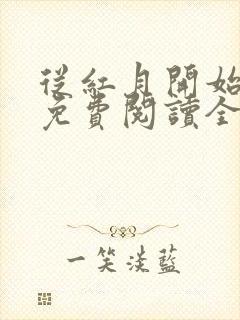 從紅月開始
免費閱讀全
一笑淡藍